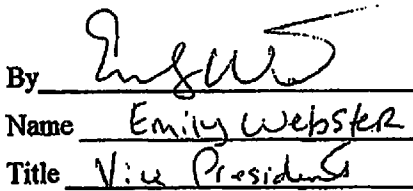 By
Name Emily Webster
Title Vice President